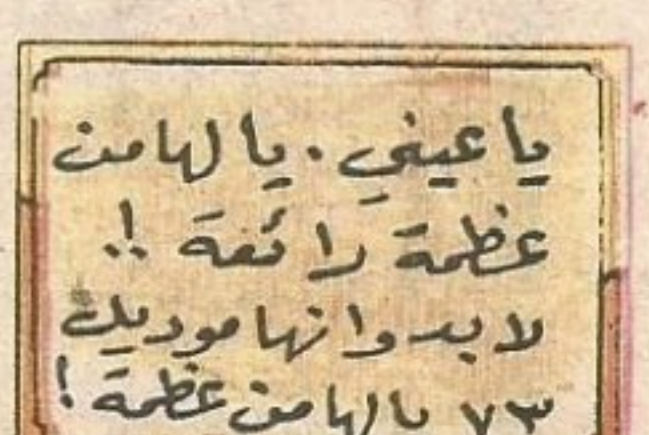 يا عيني . يا لها من
عظمة رائعة !!
لا بد وانها موديل
٧٣ يا لها من عظمة !